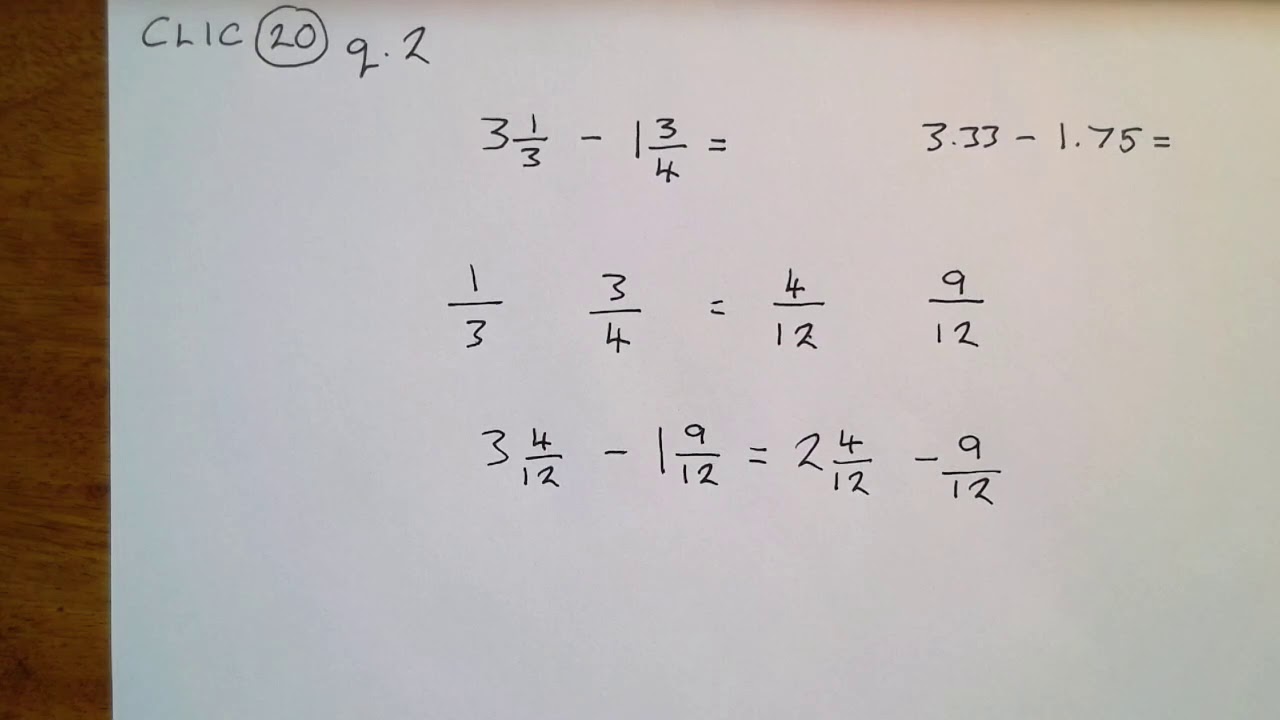 CLIC 20 q.2
3 1/3 - 1 3/4 = 3.33 - 1.75 =
1/3 3/4 = 4/12 9/12
3 4/12 - 1 9/12 = 2 4/12 - 9/12